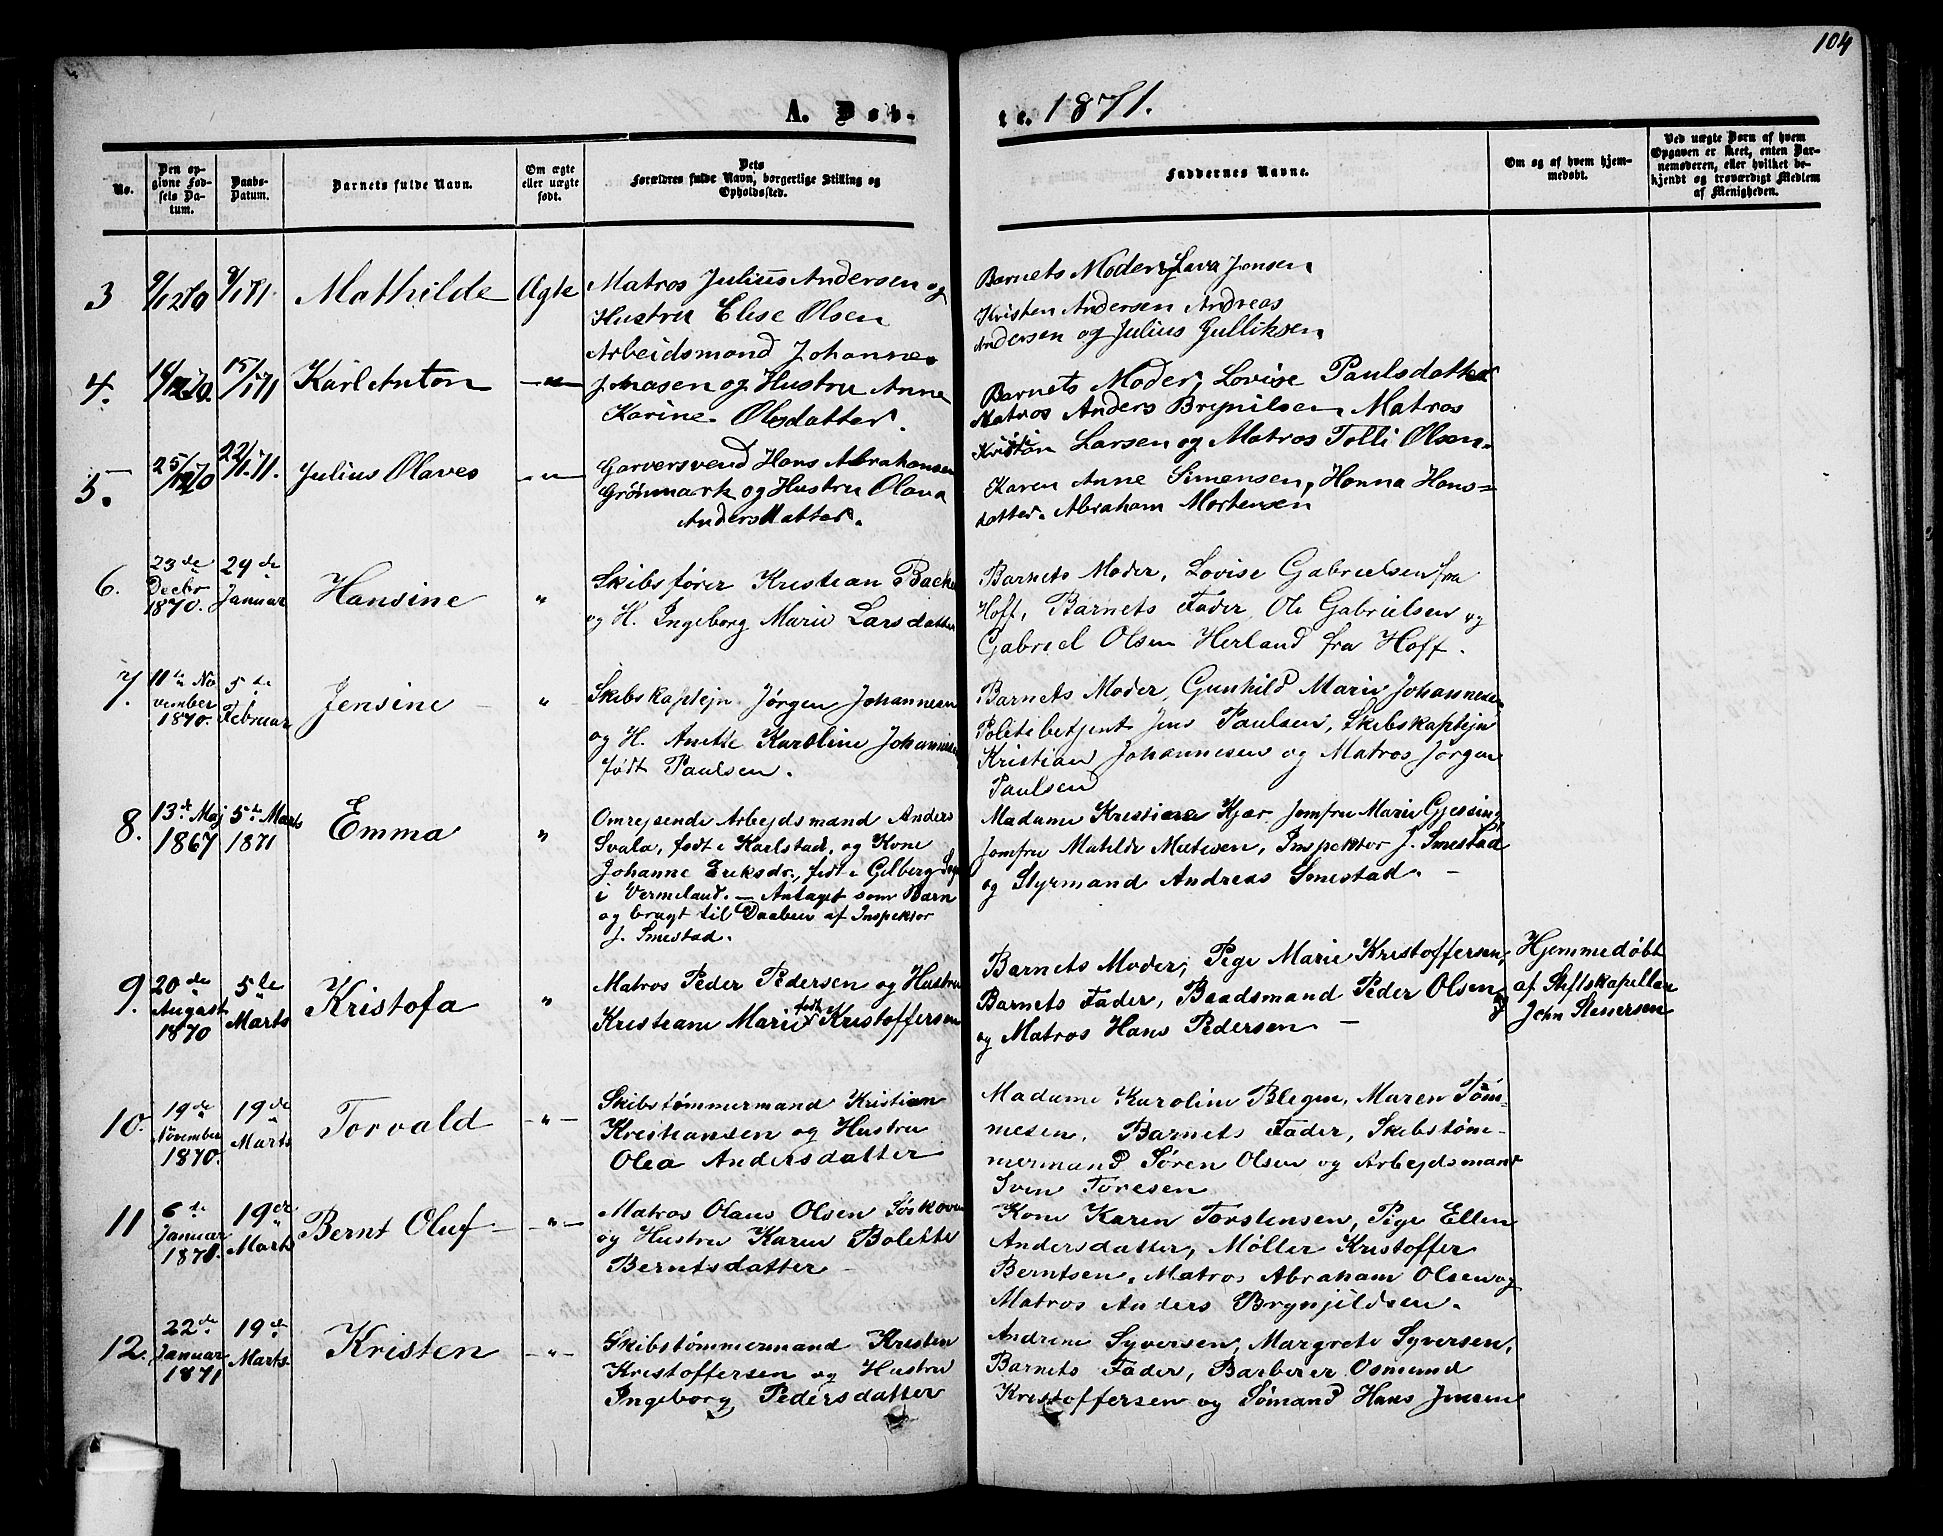 104
A. Døb-
te. 1871.
No.
Den op-
givne Fød-
sels Da-
tum.
Daabs-
Datum.
Barnets fulde Navn.
Om ægte
eller uægte
født.
Dets
Forældres fulde Navn, borgerlige Stilling og
Opholdssted.
Faddernes Navne.
Om og af hvem hjem-
medøbt.
Ved uægte Børn af hvem
Opgaven er skeet, enten Bar-
nemoderen, eller hvilket be-
kjendt og troværdigt Medlem
af Menigheden.
3
9/12 70
8/1 71.
Mathilde
Ægte
Matros Julius Andersen og
Hustru Elise Olsen
Barnets Moder, Lava Jensen
Kristen Andersen Andreas
Andersen og Julius Gulliksen
4.
15/1 71
Karl Anton
—"—
Arbeidsmand Johannes
Johnsen og Hustru Anne
Karine Olsdatter.
Barnets Moder, Lovise Paulsdatter
Matros Anders Brynilsen Matros
Kristian Larsen og Matros Tolli Olsen
5.
25/12 70
22/1. 71.
Julius Olaves
—"—
Garversvend Hans Abrahamsen
Grönmark og Hustru Olava
Andersdatter.
Karen Anne Simensen, Hanna Hans=
datter. Abraham Mortensen
6.
23de
Decbr
1870.
29de
Januar
Hansine
"
Skibsfører Kristian Backe
og H. Ingeborg Marie Larsdatter
Barnets Moder, Lovise Gabrielsen fra
Hoff, Barnets Fader, Ole Gabrielsen og
Gabriel Olsen Herland fra Hoff.
7.
11te No
vember
1870.
5te
Februar
Jensine
"
Skibskaptejn Jørgen Johannesen
og H. Anette Karoline Johannesen
født Paulsen.
Barnets Moder, Gunhild Marie Johannesen
Politibetjent Jens Paulsen, Skibskaptejn
Kristian Johannesen og Matros Jørgen
Paulsen
8.
13de Maj
1867
5te Marts
1871
Emma
"
Omrejsende Arbejdsmand Anders
Svala, født i Karlstad, og Kone
Johanne Eriksdr., født i Gilberg Sogn
i Vermeland. — Antaget som Barn
og bragt til Daaben af Inspektor
J. Smestad.
Madame Kristiane Kjær, Jomfru Marie Gjessing,
Jomfru Matilde Mathesen, Inspektor J. Smestad
og Styrmand Andreas Smestad. —
9.
20de
August
1870
5te
Marts
Kristofa
"
Matros Peder Pedersen og Hustru
Kristiane Marie født Kristoffersen
Barnets Moder, Pige Marie Kristoffersen,
Barnets Fader, Baadsmand Peder Olsen
og Matros Hans Pedersen —
Hjemmedøbt
af Stiftskapellan
John Stenersen
10.
19de
November
1870.
19de
Marts
Torvald
—"—
Skibstømmermand Kristian
Kristiansen og Hustru
Olea Andersdatter
Madame Karoline Blegen, Maren Tøm-
mesen, Barnets Fader, Skibstøm-
mermand Søren Olsen og Arbejdsmand
Sven Toresen
11
6te
Januar
1871.
19de
Marts
Bernt Oluf
—"—
Matros Olaus Olsen Søskoven
og Hustru Karen Bolette
Berntsdatter
Kone Karen Torstensen, Pige Ellen
Andersdatter, Møller Kristoffer
Berntsen, Matros Abraham Olsen og
Matros Anders Brynjildsen.
12.
22de
Januar
1871
19de
Marts
Kristen
—"—
Skibstømmermand Kristen
Kristoffersen og Hustru
Ingeborg Pedersdatter
Andrine Syversen, Margrete Syversen,
Barnets Fader, Barberer Osmund
Kristoffersen og Sømand Hans Jensen